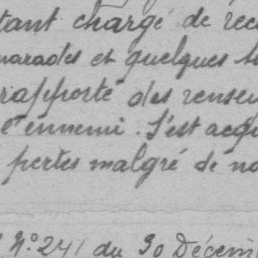 tant chargé de rec
marades et quelques
rapporté des rensei
l'ennemi. S'est acqu
pertes malgré de no
N° 241 du 30 Décem